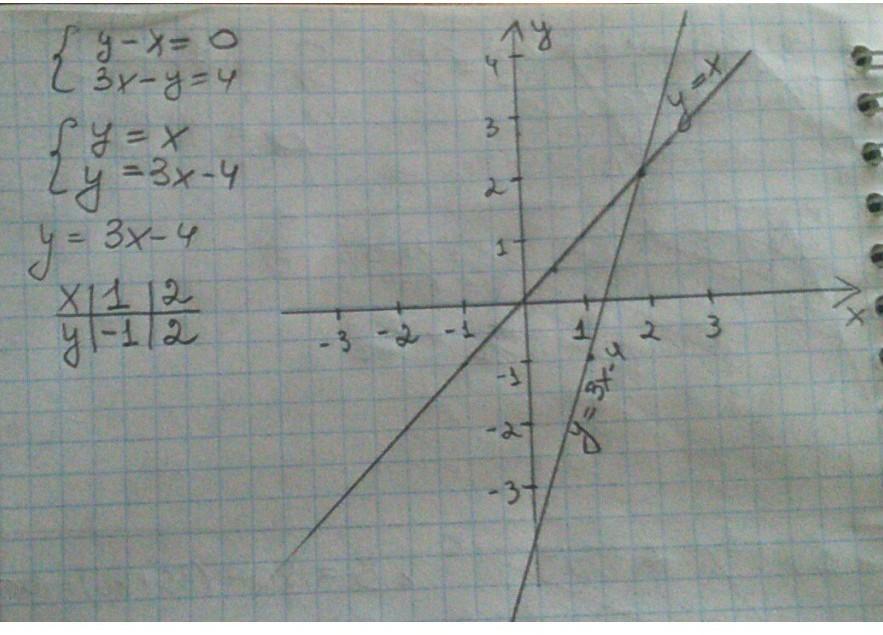 { y - x = 0
3x - y = 4
{ y = x
y = 3x - 4
y = 3x - 4
x | 1 | 2
y | -1 | 2
y
4
3
2
1
-3 -2 -1 1 2 3
x
-1
-2
-3
y = x
y = 3x - 4